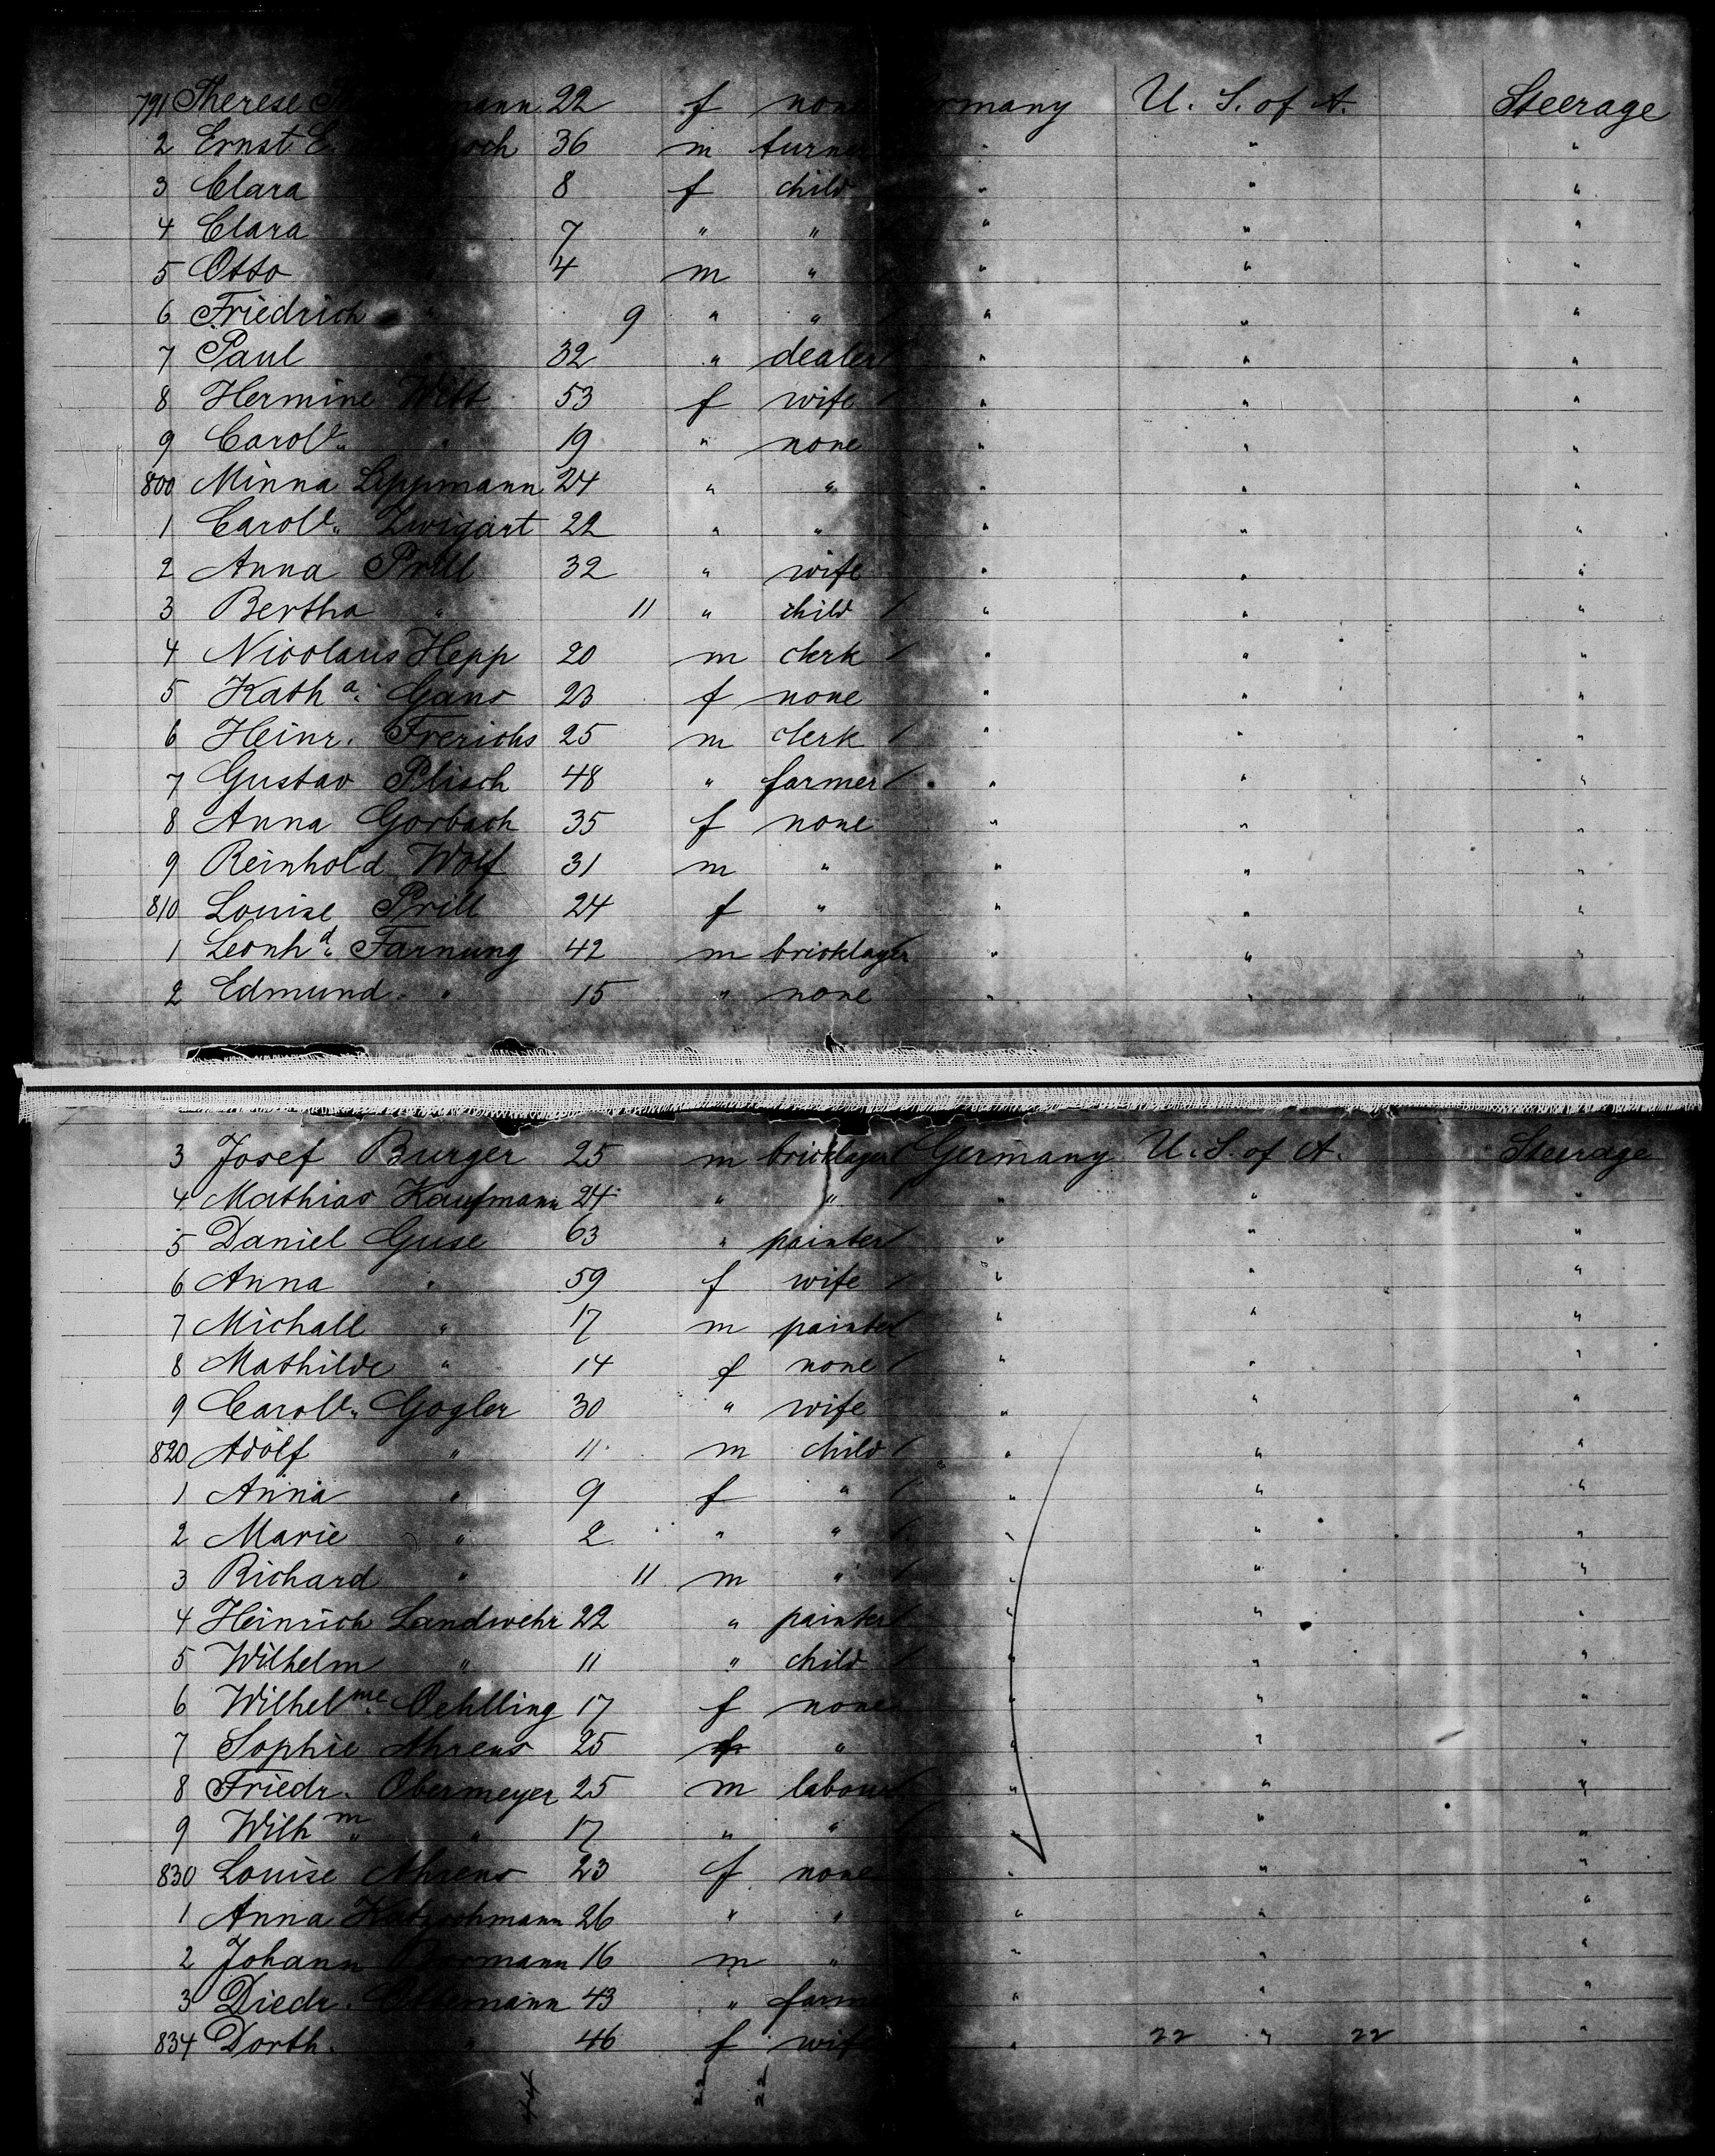 791 Therese mann 22 f none Germany U. S. of A. Steerage
2 Ernst 36 m turner " " "
3 Clara 8 f child " " "
4 Clara 7 " " " " "
5 Otto " 4 m " " " "
6 Friedrich " 9 " " " " "
7 Paul " 32 " dealer " " "
8 Hermine Witt 53 f wife " " "
9 Carole. " 19 " none " " "
800 Minna Lippmann 24 " " " " "
1 Carole. Zwigart 22 " " " " "
2 Anna Prill 32 " wife " " "
3 Bertha " 11 " child " " "
4 Nicolaus Hepp 20 m clerk " " "
5 Katha. Gans 23 f none " " "
6 Heinr. Frerichs 25 m clerk " " "
7 Gustav Plisch 48 " farmer " " "
8 Anna Gorbach 35 f none " " "
9 Reinhold Wolf 31 m " " " "
810 Louise Prill 24 f " " " "
1 Leonhd. Farnung 42 m bricklayer " " "
2 Edmund " 15 " none " " "
3 Josef Burger 25 m bricklayer Germany U. S. of A. Steerage
4 Mathias Kaufmann 24 " " " " "
5 Daniel Guse 63 " painter " " "
6 Anna " 59 f wife " " "
7 Michall " 17 m painter " " "
8 Mathilde " 14 f none " " "
9 Carole. Gogler 30 " wife " " "
820 Adolf " 11 m child " " "
1 Anna " 9 f " " " "
2 Marie " 2 " " " " "
3 Richard " 11 m " " " "
4 Heinrich Landwehr 22 " painter " " "
5 Wilhelm " 11 " child " " "
6 Wilhelme. Oehlling 17 f none " " "
7 Sophie Ahrens 25 f " " " "
8 Friedr. Obermeyer 25 m labour " " "
9 Wilhm " 17 " " " " "
830 Louise Ahrens 23 f none " " "
1 Anna 26 " " " " "
2 Johann 16 m " " " "
3 Diedr. 43 " farmer " " "
834 Dorth. " 46 f wife " 22 " 22 "
44 22 22